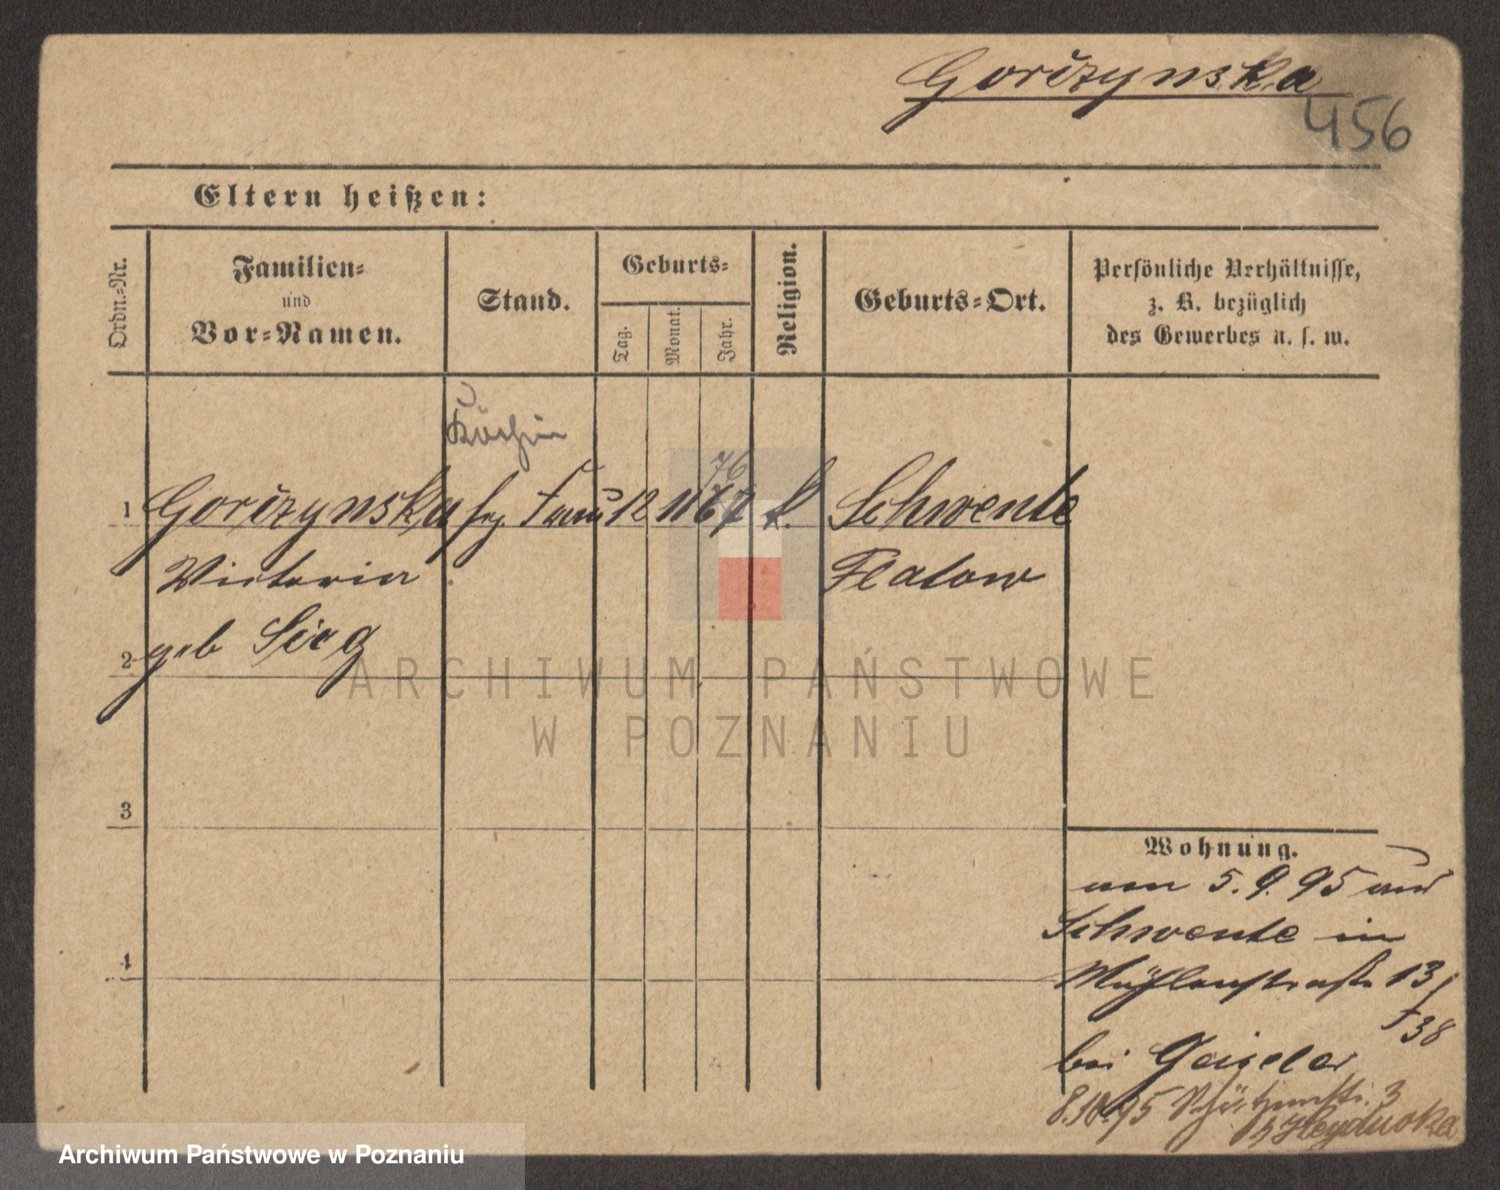 Gorczynska
456
Eltern heißen:
Ordn.-Nr.
Familien-
und
Vor-Namen.
Stand.
Geburts-
Tag.
Monat.
Jahr.
Religion.
Geburts-Ort.
Persönliche Verhältnisse,
z. B. bezüglich
des Gewerbes u. s. w.
Köchin
76
1 Gorczynska frz. Frau 12 11 67 k. Schwente
Victoria Flatow
2 geb Sieg
3
4
Wohnung.
am 5. 9. 95 aus
Schwente in
Mühlenstraße 13
38
bei Geiseler
8.10.95 Schützenstr. 3
b/ Heyducka
ARCHIWUM PAŃSTWOWE
W POZNANIU
Archiwum Państwowe w Poznaniu